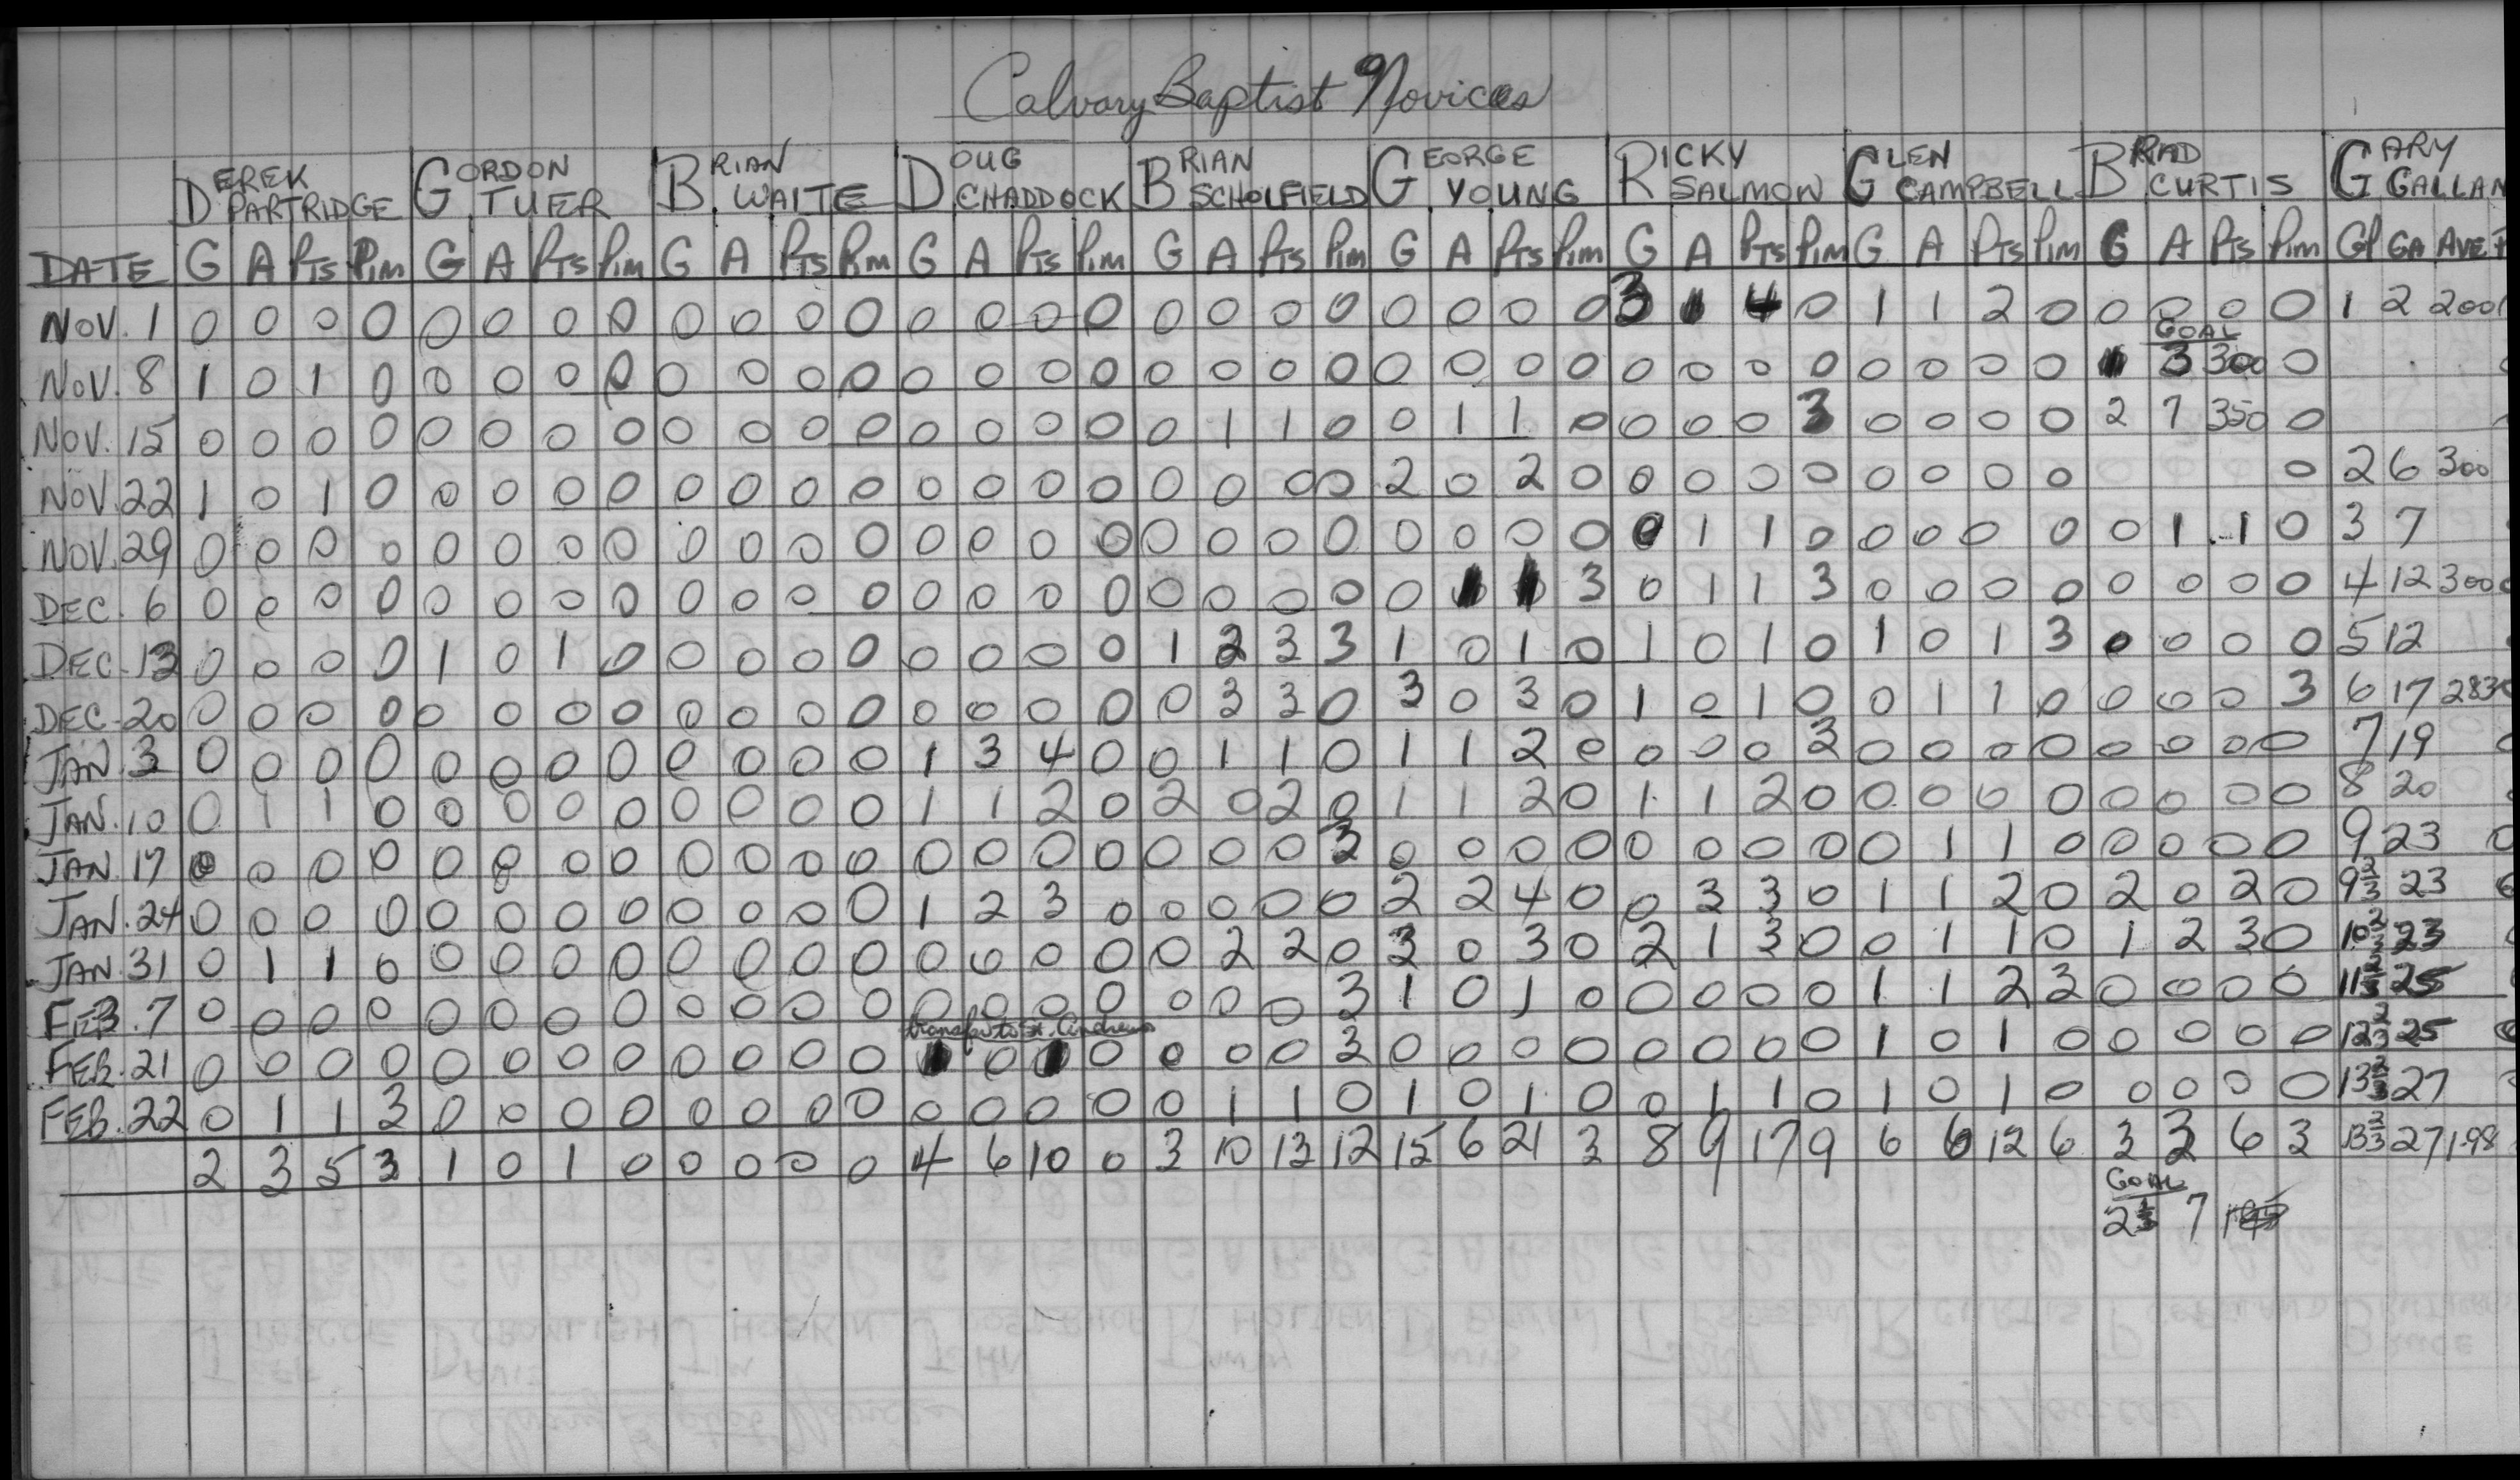 Calvary Baptist Novices
DEREK PARTRIDGE GORDON TUFER BRIAN WAITE DOUG CHADDOCK BRIAN SCHOLFIELD GEORGE YOUNG RICKY SALMON GLEN CAMPBELL BRAD CURTIS GARY GALLAN
DATE G A PTS PIM G A PTS PIM G A PTS PIM G A PTS PIM G A PTS PIM G A PTS PIM G A PTS PIM G A PTS PIM G A PTS PIM GP GA AVE
NOV. 1 0 0 0 0 0 0 0 0 0 0 0 0 0 0 0 0 0 0 0 0 0 0 0 0 3 1 4 0 1 1 2 0 0 0 0 0 1 2 200
GOAL
NOV. 8 1 0 1 0 0 0 0 0 0 0 0 0 0 0 0 0 0 0 0 0 0 0 0 0 0 0 0 0 0 0 0 0 3 300 0
NOV. 15 0 0 0 0 0 0 0 0 0 0 0 0 0 0 0 0 0 1 1 0 0 1 1 0 0 0 0 3 0 0 0 0 2 7 350 0
NOV. 22 1 0 1 0 0 0 0 0 0 0 0 0 0 0 0 0 0 0 0 0 2 0 2 0 0 0 0 0 0 0 0 0 0 2 6 300
NOV. 29 0 0 0 0 0 0 0 0 0 0 0 0 0 0 0 0 0 0 0 0 0 0 0 0 0 1 1 0 0 0 0 0 0 1 1 0 3 7
DEC. 6 0 0 0 0 0 0 0 0 0 0 0 0 0 0 0 0 0 0 0 0 0 3 0 1 1 3 0 0 0 0 0 0 0 0 4 12 300
DEC. 13 0 0 0 0 1 0 1 0 0 0 0 0 0 0 0 0 1 2 3 3 1 0 1 0 1 0 1 0 1 0 1 3 0 0 0 0 5 12
DEC. 20 0 0 0 0 0 0 0 0 0 0 0 0 0 0 0 0 0 3 3 0 3 0 3 0 1 0 1 0 0 1 1 0 0 0 0 3 6 17 283
JAN. 3 0 0 0 0 0 0 0 0 0 0 0 0 1 3 4 0 0 1 1 0 1 1 2 0 0 0 0 3 0 0 0 0 0 0 0 0 7 19
JAN. 10 0 1 1 0 0 0 0 0 0 0 0 0 1 1 2 0 2 0 2 0 1 1 2 0 1 1 2 0 0 0 0 0 0 0 0 0 8 20
JAN. 17 0 0 0 0 0 0 0 0 0 0 0 0 0 0 0 0 0 0 0 3 0 0 0 0 0 0 0 0 0 1 1 0 0 0 0 0 9 23 0
JAN. 24 0 0 0 0 0 0 0 0 0 0 0 0 1 2 3 0 0 0 0 0 2 2 4 0 0 3 3 0 1 1 2 0 2 0 2 0 9 2/3 23
JAN. 31 0 1 1 0 0 0 0 0 0 0 0 0 0 0 0 0 0 2 2 0 3 0 3 0 2 1 3 0 0 1 1 0 1 2 3 0 10 2/3 23
FEB. 7 0 0 0 0 0 0 0 0 0 0 0 0 0 0 0 0 0 0 0 3 1 0 1 0 0 0 0 0 1 1 2 3 0 0 0 0 11 2/3 25
transfer to St. Andrews
FEB. 21 0 0 0 0 0 0 0 0 0 0 0 0 0 0 0 0 0 3 0 0 0 0 0 0 0 0 1 0 1 0 0 0 0 0 12 2/3 25
FEB. 22 0 1 1 3 0 0 0 0 0 0 0 0 0 0 0 0 0 1 1 0 1 0 1 0 0 1 1 0 1 0 1 0 0 0 0 0 13 2/3 27
2 3 5 3 1 0 1 0 0 0 0 0 4 6 10 0 3 10 13 12 15 6 21 3 8 9 17 9 6 6 12 6 3 3 6 3 13 2/3 27 1.98
GOAL
2 1/3 7